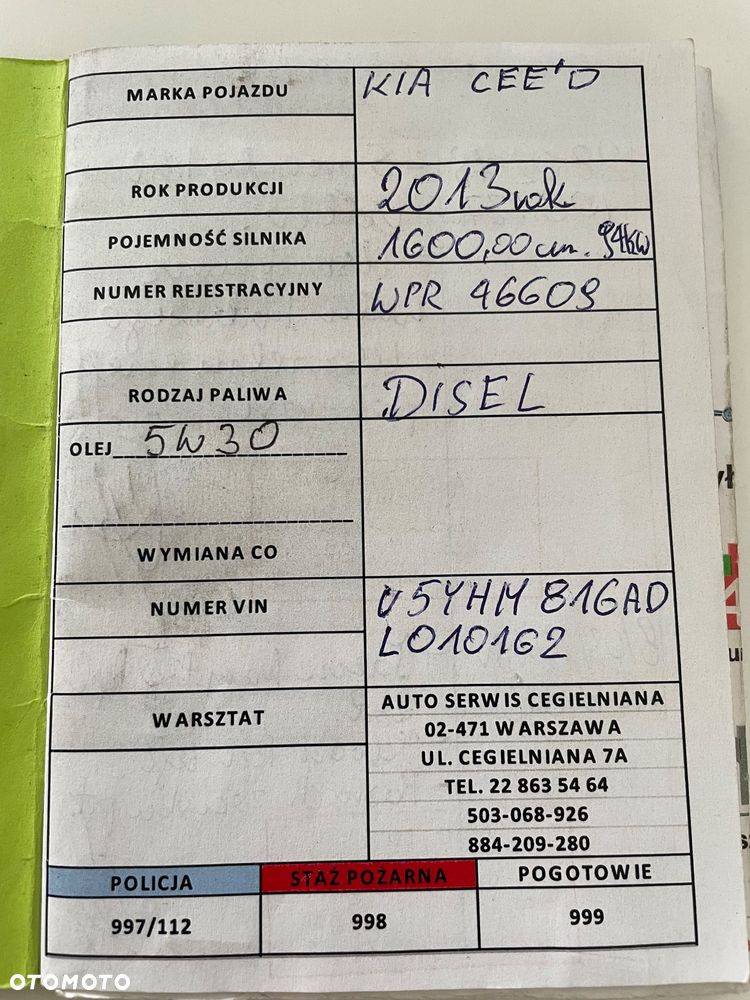 MARKA POJAZDU KIA CEE'D
ROK PRODUKCJI 2013 rok
POJEMNOŚĆ SILNIKA 1600,00 cm. 94KW
NUMER REJESTRACYJNY WPR 46609
RODZAJ PALIWA DISEL
OLEJ 5W30
WYMIANA CO
NUMER VIN U5YHM816AD
L010162
WARSZTAT AUTO SERWIS CEGIELNIANA
02-471 WARSZAWA
UL. CEGIELNIANA 7A
TEL. 22 863 54 64
503-068-926
884-209-280
POLICJA STAŻ POŻARNA POGOTOWIE
997/112 998 999
OTOMOTO